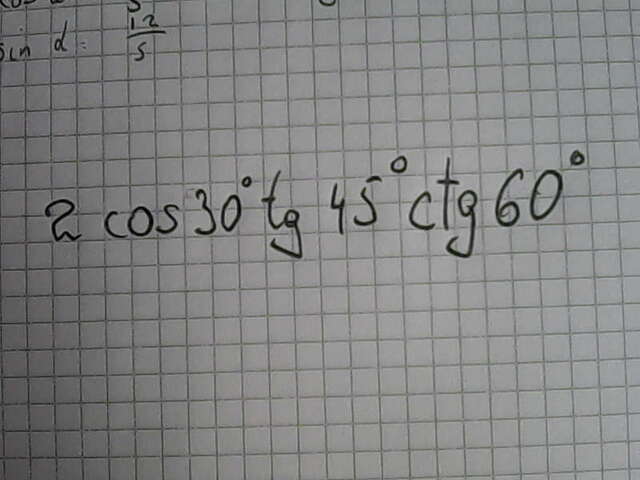 sin d: 12/5
2 cos 30° tg 45° ctg 60°